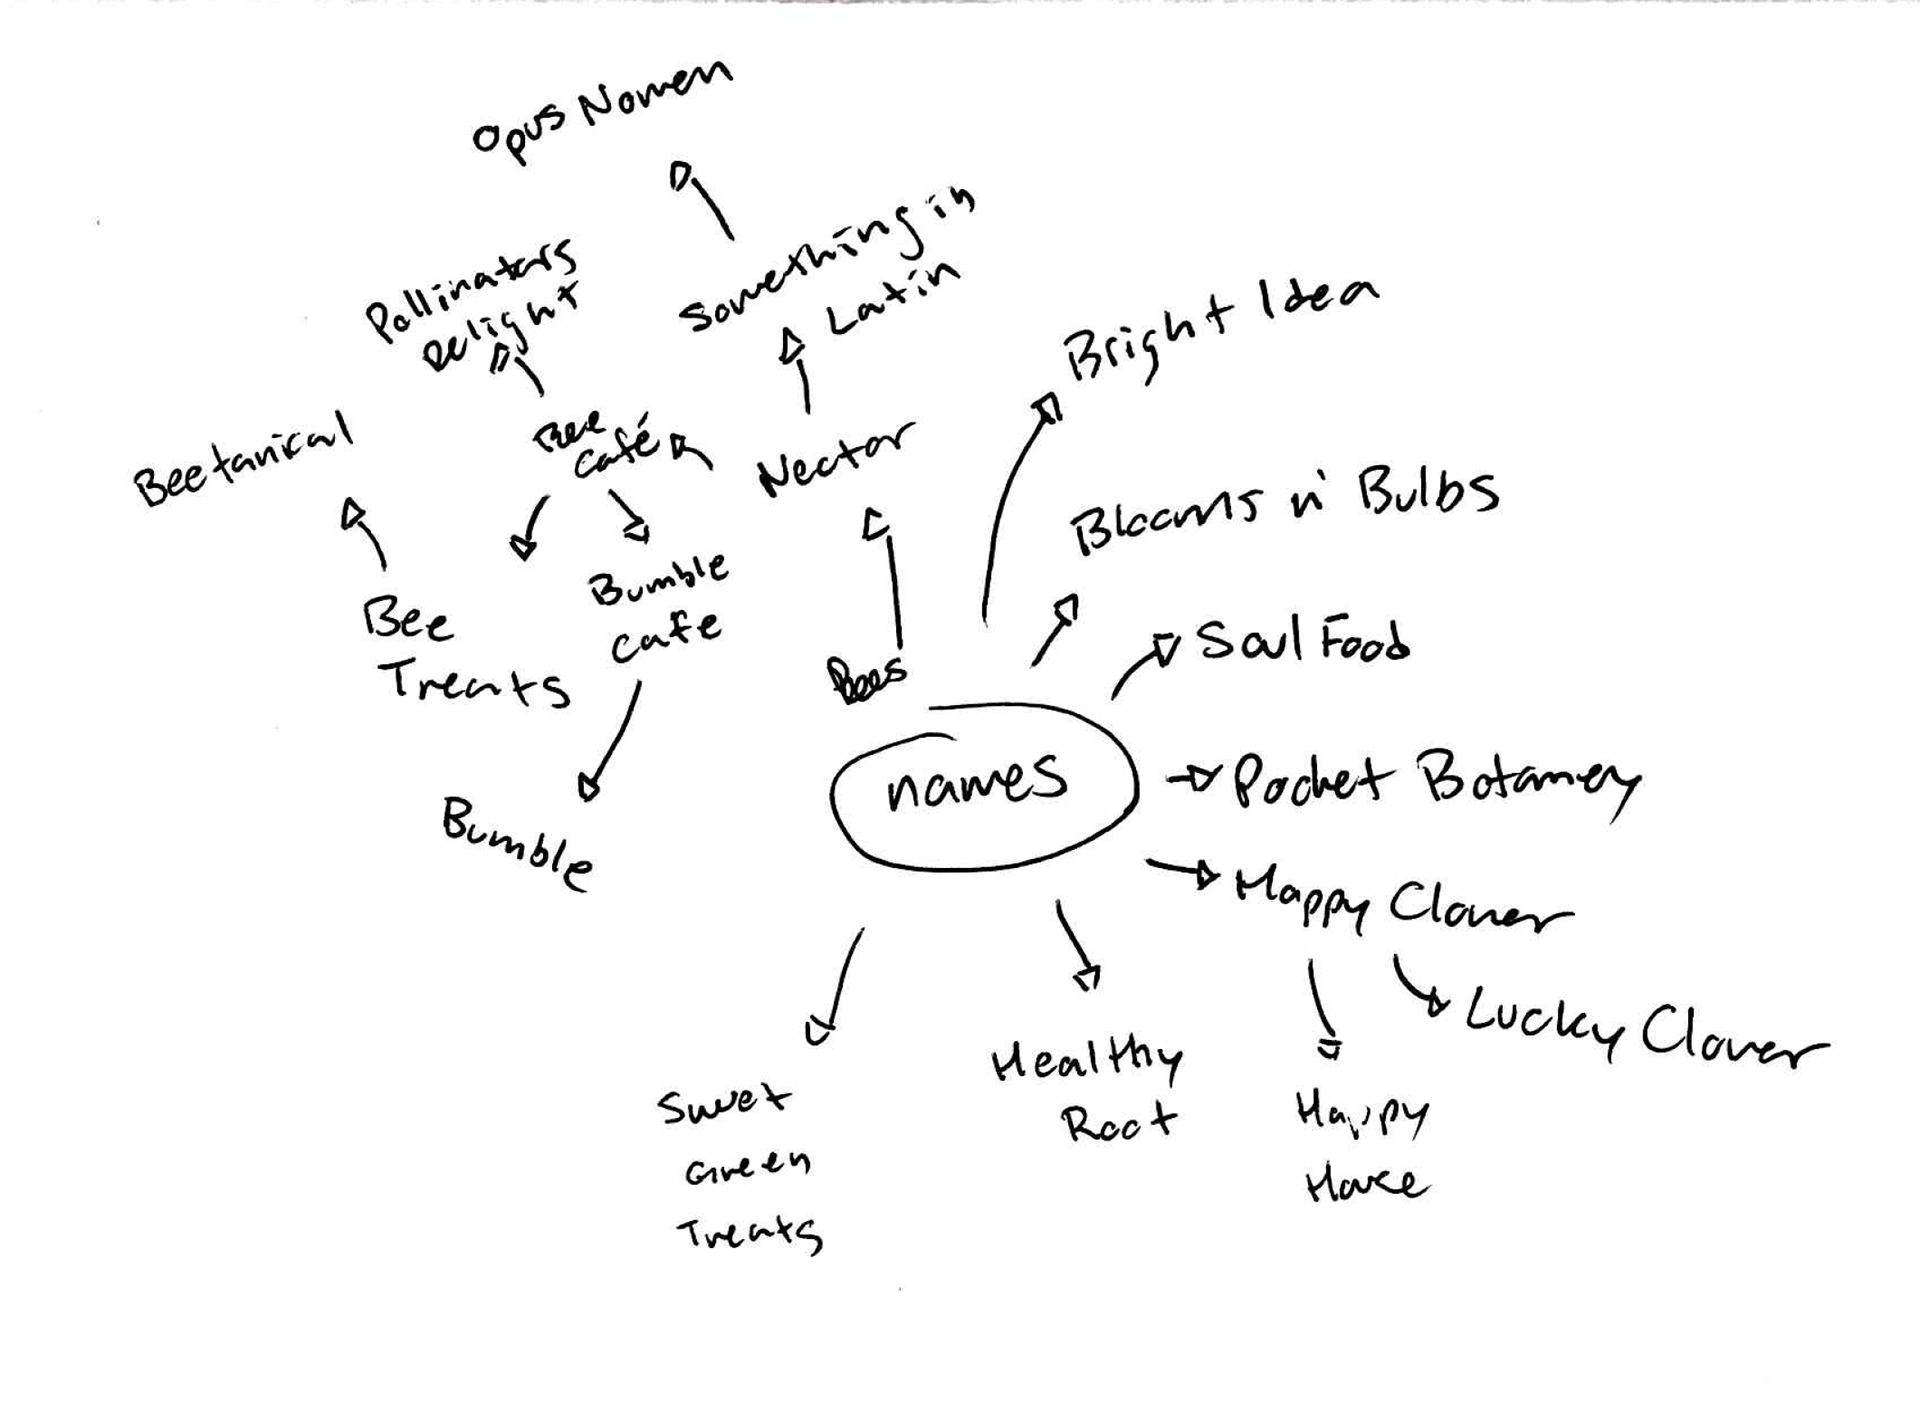 Opus Nomen
Something in
Latin
Pollinators
Delight
Bright Idea
Beetanical
Bee
Café
Nectar
Blooms n' Bulbs
Bee
Treats
Bumble
cafe
Bees
Soul Food
names
Pocket Botaney
Bumble
Happy Clover
Lucky Clover
Healthy
Root
Happy
House
Sweet
Green
Treats